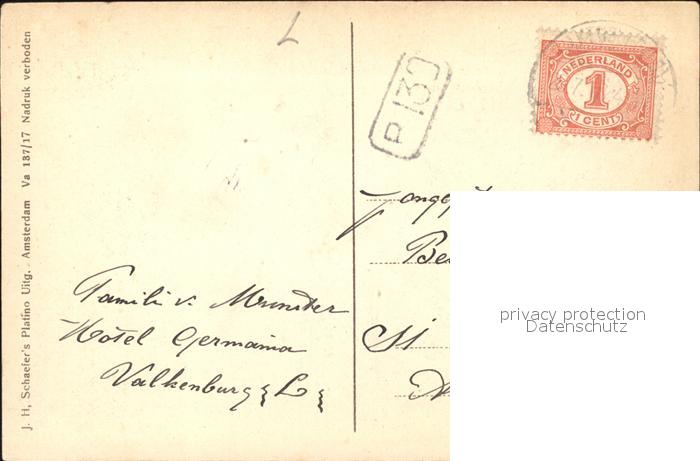 J. H. Schaefer's Platino Uitg. Amsterdam Va 187/17 Nadruk verboden
L
P 130
NEDERLAND
1
1 CENT
Famili v. Munster
Hôtel Germania
Valkenburg {L}
privacy protection
Datenschutz